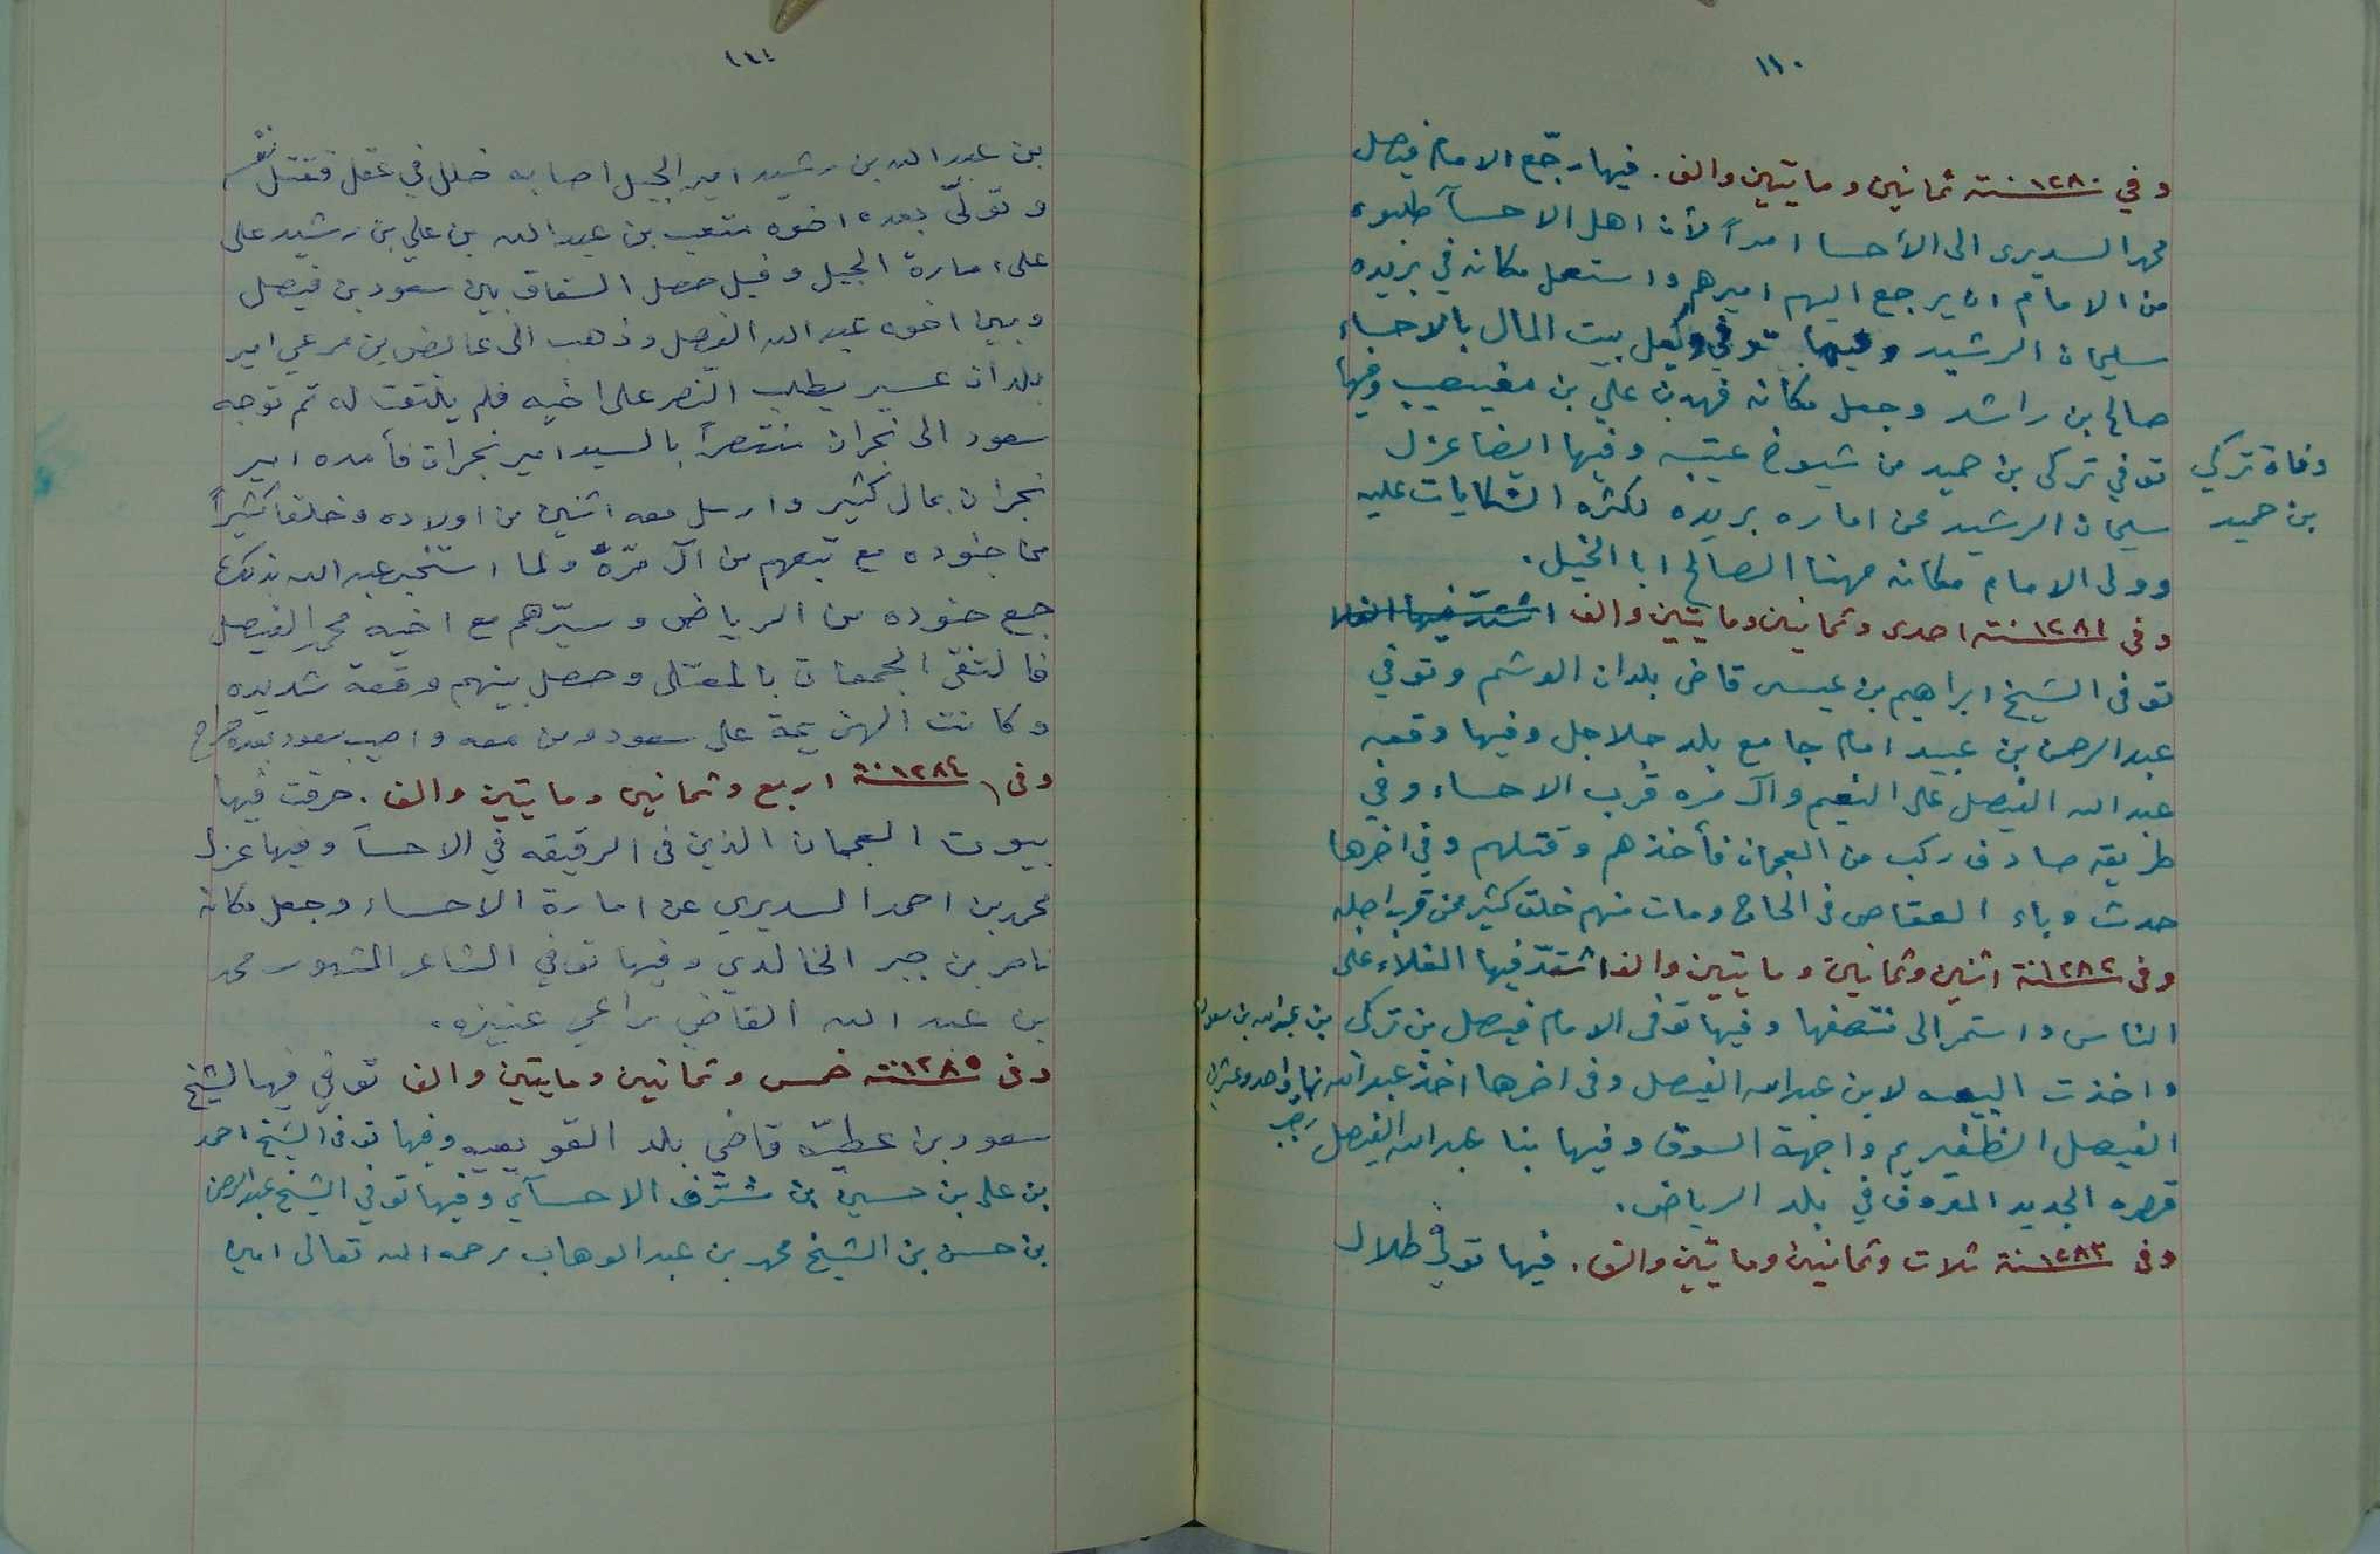 ١١٠
وفي سنة ١٢٨٠ ثمانين ومايتين والف. فيها رجّع الامام فيصل
محمد السديرى الى الأحسا امراً لأن اهل الاحسآ طلبوه
من الامام ان يرجع اليهم اميرهم واستعمل مكانه في بريده
سليمان الرشيد وفيها توفي وكيل بيت المال بالاحساء
صالح بن راشد وجعل مكانه فهد بن علي بن مغيصيب وفيها
توفي تركى بن حميد من شيوخ عتيبه وفيها ايضا عزل
وفاة تركي
بن حميد
سليمان الرشيد عن اماره بريده لكثره الشكايات عليه
وولى الامام مكانه مهنا الصالح ابا الخيل.
وفى سنة ١٢٨١ احدى وثمانين ومايتين والف اشتد فيها الغلا
توفى الشيخ ابراهيم بن عيسى قاضى بلدان الوشم وتوفي
عبد الرحمن بن عبيد امام جامع بلد جلاجل وفيها وقعه
عبد الله الفيصل على النعيم وآل مره قرب الاحساء وفي
طريقه صادف ركب من العجمان فأخذهم وقتلهم وفي اخرها
حدث وباء العقاص فى الحاج ومات منهم خلق كثير ممن قرب اجله
وفى سنة ١٢٨٢ اثنين وثمانين ومايتين والف اشتدّ فيها الغلاء على
الناس واستمر الى منتصفها وفيها توفى الامام فيصل بن تركى بن عبد الله بن سعود
واخذت البيعه لابن عبد الله الفيصل وفى اخرها اخذ عبد الله نهار واحد وعشرين
رجب
الفيصل الظفير يم واجهة السوق وفيها بنا عبد الله الفيصل
قصره الجديد المعروف في بلد الرياض.
وفى سنة ١٢٨٣ ثلاث وثمانين ومايتين والف. فيها توفي طلال
١١١
بن عبد الله بن رشيد امير الجبل اصابه خلل في عقله فقتل نفسه
وتولّى بعده اخوه متعب بن عبد الله بن علي بن رشيد على
على امارة الجبل وقيل حصل الشقاق بين سعود بن فيصل
وبين اخوه عبد الله الفيصل وذهب الى عائض بن مرعي امير
بلدان عسير يطلب النصر على اخيه فلم يلتفت له ثم توجه
سعود الى نجران منتصراً بالسيد امير نجران فأمده امير
نجران بمال كثير وارسل معه اثنين من اولاده وخلقا كثيراً
من جنوده مع تبعهم من آل مرّة ولما استخبر عبد الله بذلك
جمع جنوده من الرياض وسيّرهم مع اخيه محمد الفيصل
فالتقى الجمعان بالمعتلى وحصل بينهم وقعة شديده
وكانت الهزيمة على سعود ومن معه واصيب سعود بعده جروح
وفى سنة ١٢٨٤ اربع وثمانين ومايتين والف. حرقت فيها
بيوت العجمان الذين فى الرقيقه في الاحسآ وفيها عزل
محمد بن احمد السديري عن امارة الاحساء وجعل مكانه
ناصر بن جبر الخالدي وفيها توفي الشاعر المشهور محمد
بن عبد الله القاضي راعي عنيزه.
وفى سنة ١٢٨٥ خمس وثمانين ومايتين والف توفي فيها الشيخ
سعود بن عطيّه قاضي بلد القويعيه وفيها توفى الشيخ احمد
بن على بن حسين بن مشرّف الاحسآي وفيها توفي الشيخ عبد الرحمن
بن حسن بن الشيخ محمد بن عبد الوهاب رحمه الله تعالى امين